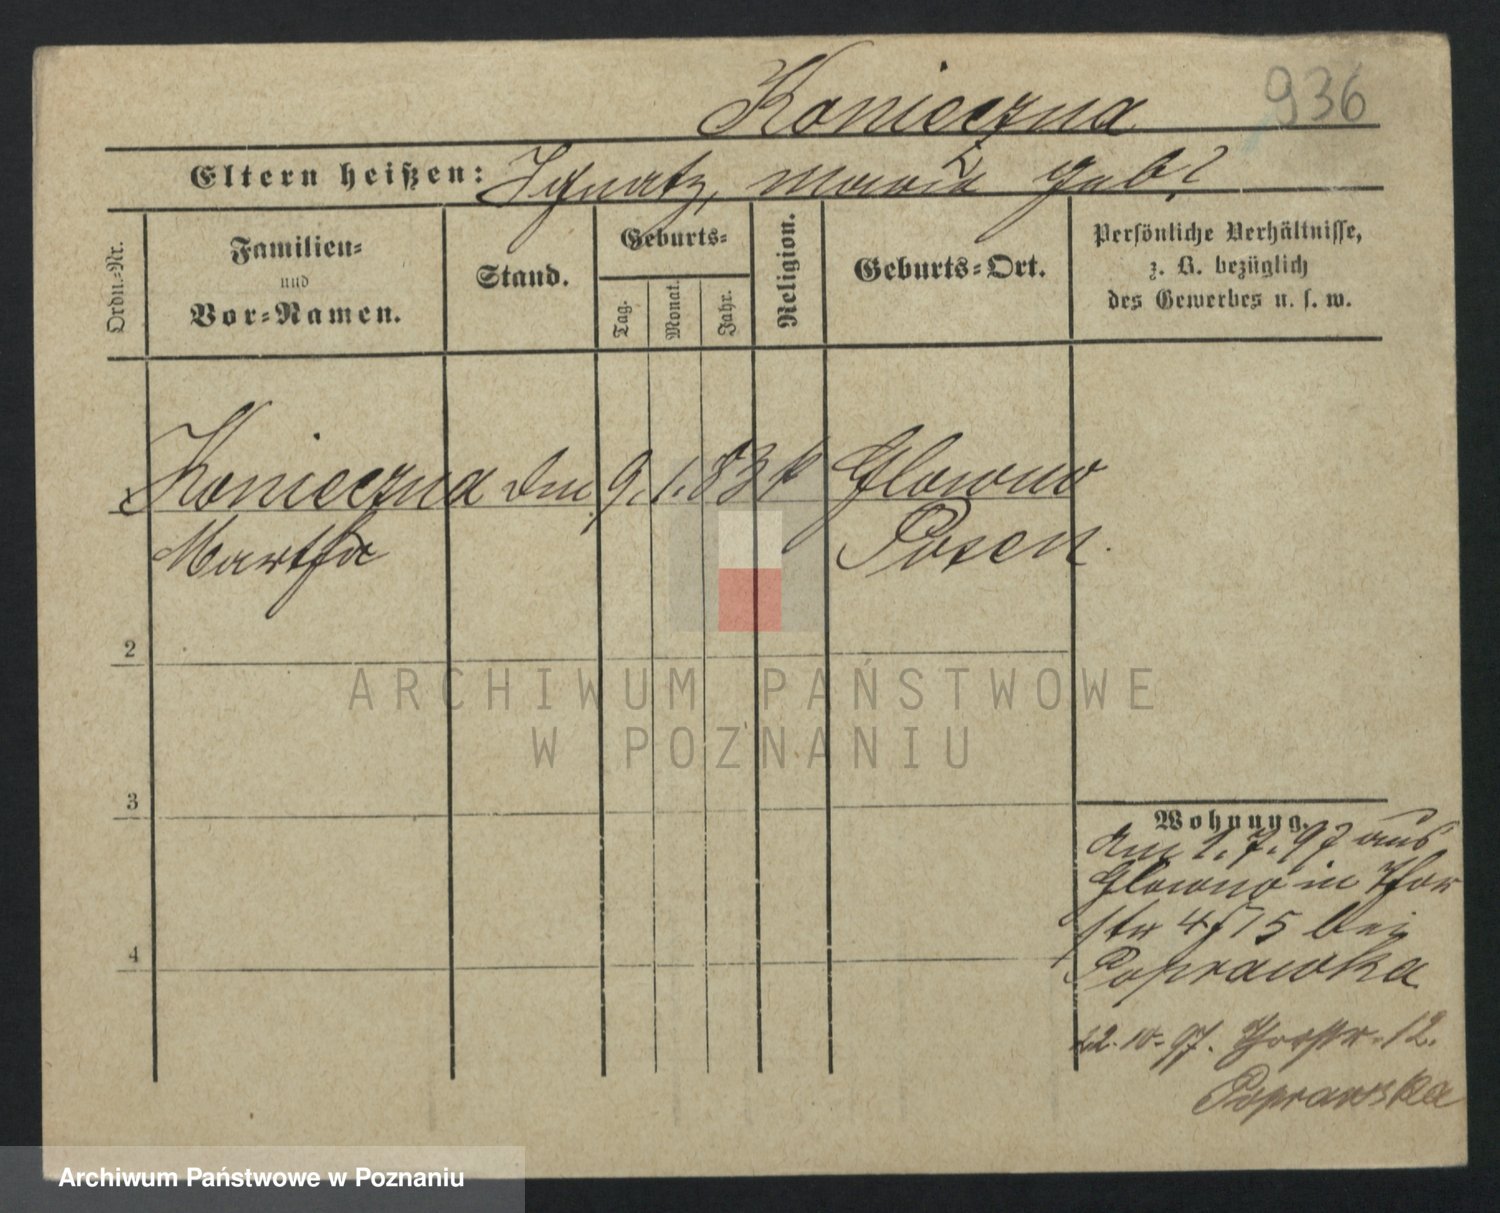 Konieczna 936
Eltern heißen: Ignatz, Maria geb?
Ordn.-Nr. Familien- und Vor-Namen. Stand. Geburts- Tag. Monat. Jahr. Religion. Geburts-Ort. Persönliche Verhältnisse, z. B. bezüglich des Gewerbes u. s. w.
1 Konieczna 9. 1. 83 k Glowno
Martha Posen.
2
3
4
Wohnung.
Am 1. 7. 97 aus
Glowno in Thor
str 4/5 bei
Poprawka
22. 10. 97. Thorstr. 12.
Poprawska
ARCHIWUM PAŃSTWOWE
W POZNANIU
Archiwum Państwowe w Poznaniu